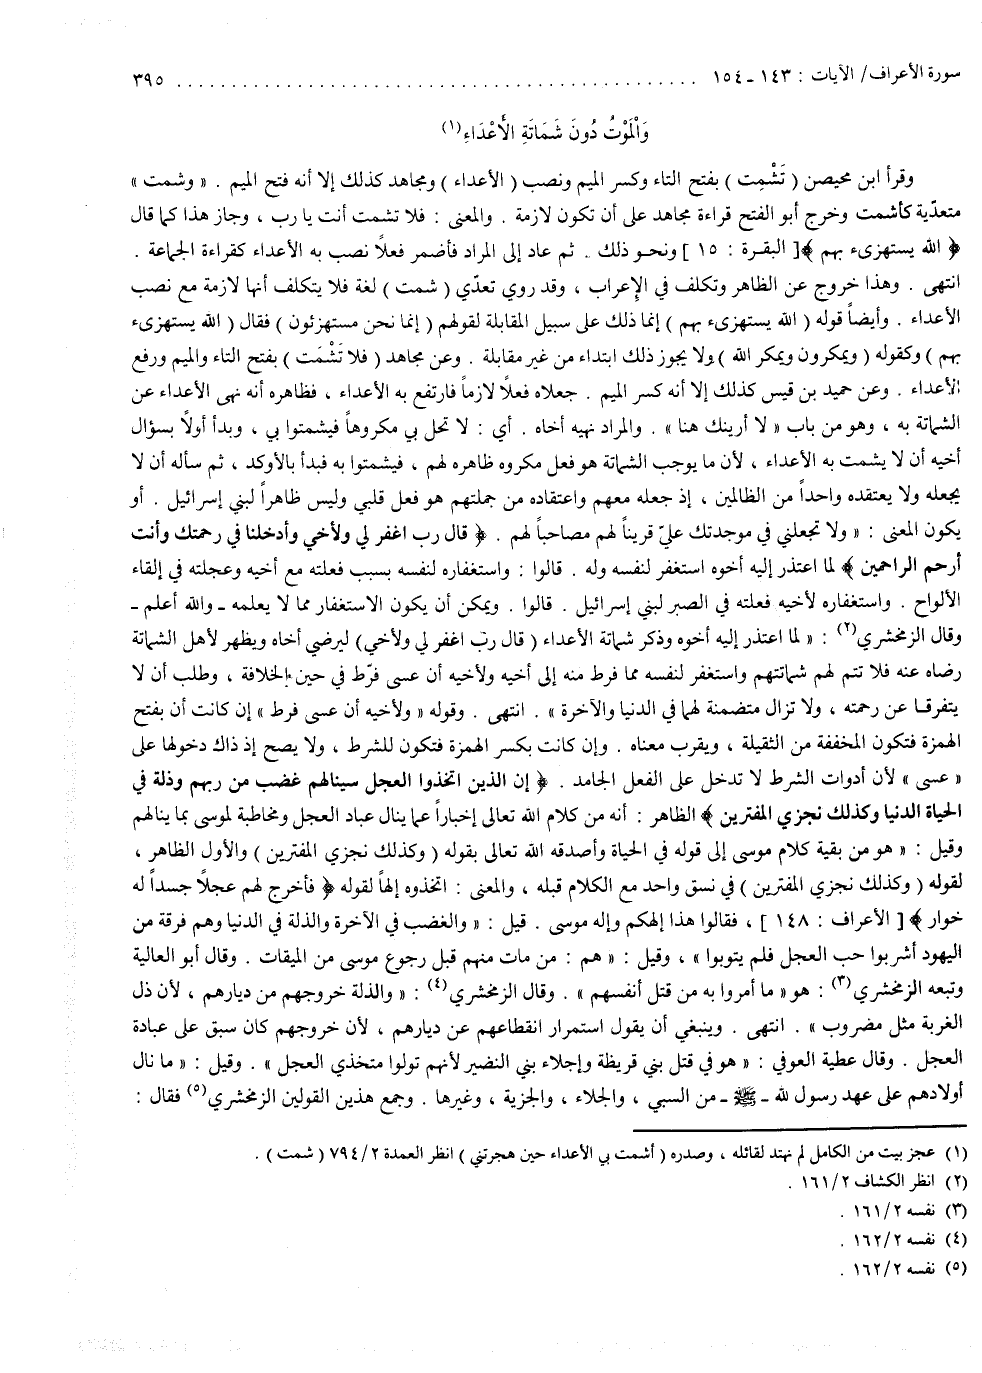 سورة الأعراف/ الآيات : ١٤٣ ـ ١٥٤ ............................................... ٣٩٥
وَالْمَوْتُ دُونَ شَمَاتَةِ الأَعْدَاءِ(١)
وقرأ ابن محيصن ( تَشْمِت ) بفتح التاء وكسر الميم ونصب ( الأعداء ) ومجاهد كذلك إلا أنه فتح الميم . « وشمت »
متعدّية كأشمت وخرج أبو الفتح قراءة مجاهد على أن تكون لازمة . والمعنى : فلا تشمت أنت يا رب ، وجاز هذا كما قال
﴿ الله يستهزىء بهم ﴾[ البقرة : ١٥ ] ونحو ذلك . ثم عاد إلى المراد فأضمر فعلاً نصب به الأعداء كقراءة الجماعة .
انتهى . وهذا خروج عن الظاهر وتكلف في الإعراب ، وقد روي تعدّي ( شمت ) لغة فلا يتكلف أنها لازمة مع نصب
الأعداء . وأيضاً قوله ( الله يستهزىء بهم ) إنما ذلك على سبيل المقابلة لقولهم ( إنما نحن مستهزئون ) فقال ( الله يستهزىء
بهم ) وكقوله ( ويمكرون ويمكر الله ) ولا يجوز ذلك ابتداء من غير مقابلة . وعن مجاهد ( فلا تَشْمَت ) بفتح التاء والميم ورفع
الأعداء . وعن حميد بن قيس كذلك إلا أنه كسر الميم . جعلاه فعلاً لازماً فارتفع به الأعداء ، فظاهره أنه نهى الأعداء عن
الشماتة به ، وهو من باب « لا أرينك هنا » . والمراد نهيه أخاه . أي : لا تحل بي مكروهاً فيشمتوا بي ، وبدأ أولاً بسؤال
أخيه أن لا يشمت به الأعداء ، لأن ما يوجب الشماتة هو فعل مكروه ظاهره لهم ، فيشمتوا به فبدأ بالأوكد ، ثم سأله أن لا
يجعله ولا يعتقده واحداً من الظالمين ، إذ جعله معهم واعتقاده من جملتهم هو فعل قلبي وليس ظاهراً لبني إسرائيل . أو
يكون المعنى : « ولا تجعلني في موجدتك عليّ قريناً لهم مصاحباً لهم . ﴿ قال رب اغفر لي ولأخي وأدخلنا في رحمتك وأنت
أرحم الراحمين ﴾ لما اعتذر إليه أخوه استغفر لنفسه وله . قالوا : واستغفاره لنفسه بسبب فعلته مع أخيه وعجلته في إلقاء
الألواح . واستغفاره لأخيه فعلته في الصبر لبني إسرائيل . قالوا . ويمكن أن يكون الاستغفار مما لا يعلمه ـ والله أعلم ـ
وقال الزمخشري(٢) : « لما اعتذر إليه أخوه وذكر شماتة الأعداء ( قال ربّ اغفر لي ولأخي) ليرضي أخاه ويظهر لأهل الشماتة
رضاه عنه فلا تتم لهم شماتتهم واستغفر لنفسه مما فرط منه إلى أخيه ولأخيه أن عسى فرّط في حين الخلافة ، وطلب أن لا
يتفرقا عن رحمته ، ولا تزال متضمنة لهما في الدنيا والآخرة » . انتهى . وقوله « ولأخيه أن عسى فرط » إن كانت أن بفتح
الهمزة فتكون المخففة من الثقيلة ، ويقرب معناه . وإن كانت بكسر الهمزة فتكون للشرط ، ولا يصح إذ ذاك دخولها على
« عسى » لأن أدوات الشرط لا تدخل على الفعل الجامد . ﴿ إن الذين اتخذوا العجل سينالهم غضب من ربهم وذلة في
الحياة الدنيا وكذلك نجزي المفترين ﴾ الظاهر : أنه من كلام الله تعالى إخباراً عما ينال عباد العجل ومخاطبة لموسى بما ينالهم
وقيل : « هو من بقية كلام موسى إلى قوله في الحياة وأصدقه الله تعالى بقوله ( وكذلك نجزي المفترين ) والأول الظاهر ،
لقوله ( وكذلك نجزي المفترين ) في نسق واحد مع الكلام قبله ، والمعنى : اتخذوه إلهاً لقوله ﴿ فأخرج لهم عجلاً جسداً له
خوار ﴾ [ الأعراف : ١٤٨ ] ، فقالوا هذا إلهكم وإله موسى . قيل : « والغضب في الآخرة والذلة في الدنيا وهم فرقة من
اليهود أشربوا حب العجل فلم يتوبوا » ، وقيل : « هم : من مات منهم قبل رجوع موسى من الميقات . وقال أبو العالية
وتبعه الزمخشري(٣) : هو « ما أمروا به من قتل أنفسهم » . وقال الزمخشري(٤) : « والذلة خروجهم من ديارهم ، لأن ذل
الغربة مثل مضروب » . انتهى . وينبغي أن يقول استمرار انقطاعهم عن ديارهم ، لأن خروجهم كان سبق على عبادة
العجل . وقال عطية العوفي : « هو في قتل بني قريظة وإجلاء بني النضير لأنهم تولوا متخذي العجل » . وقيل : « ما نال
أولادهم على عهد رسول لله ـ ﷺ ـ من السبي ، والجلاء ، والجزية ، وغيرها . وجمع هذين القولين الزمخشري(٥) فقال :
(١) عجز بيت من الكامل لم نهتد لقائله ، وصدره ( أشمت بي الأعداء حين هجرتني ) انظر العمدة ٧٩٤/٢ ( شمت ) .
(٢) انظر الكشاف ١٦١/٢ .
(٣) نفسه ١٦١/٢ .
(٤) نفسه ١٦٢/٢ .
(٥) نفسه ١٦٢/٢ .